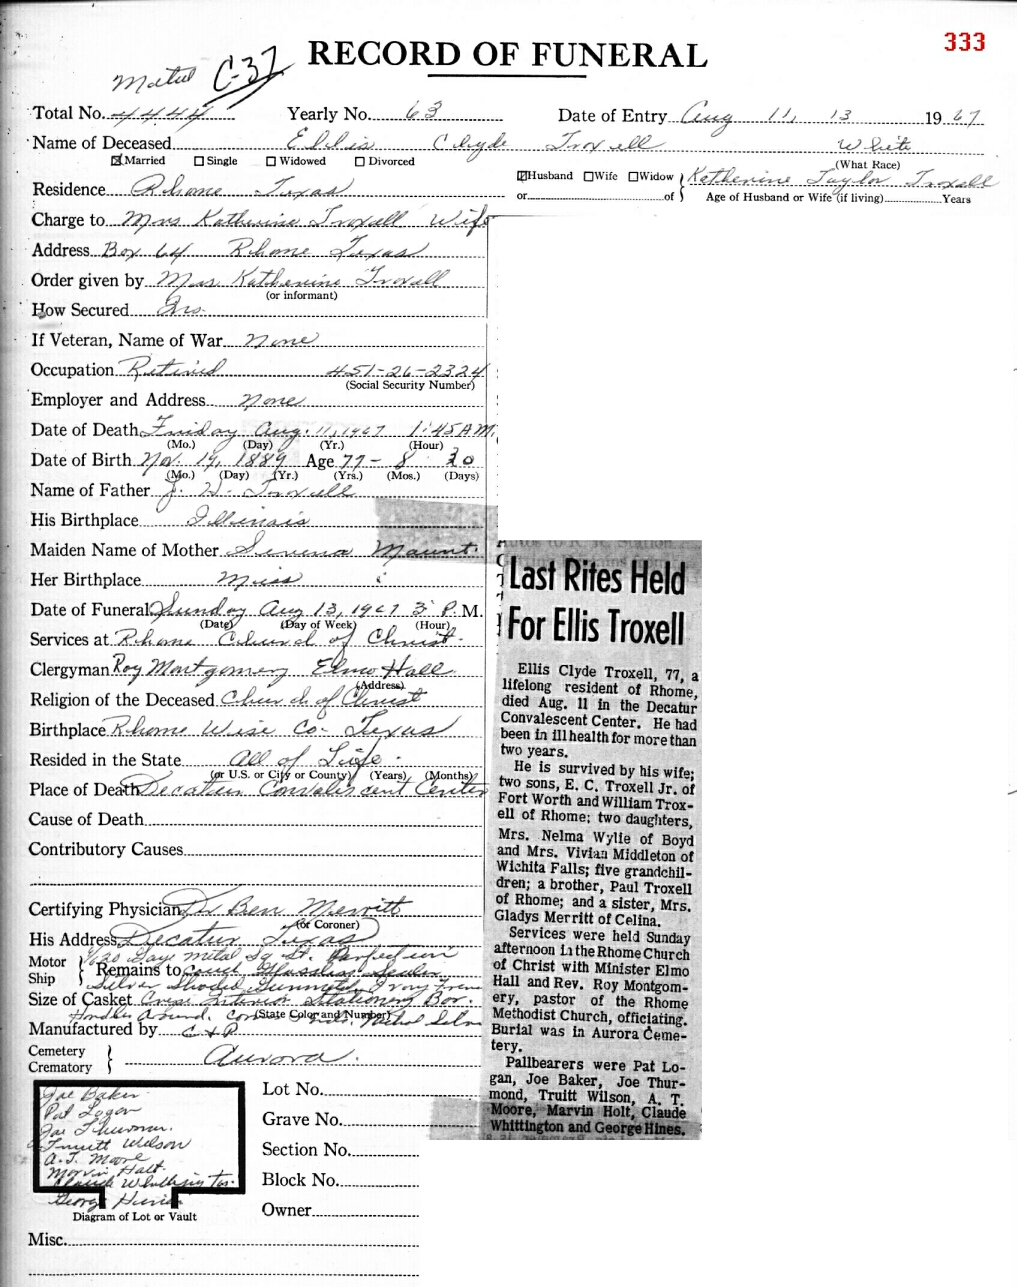 333
RECORD OF FUNERAL
Metal C-37
Total No. 4444 Yearly No. 63 Date of Entry Aug 11, 13 1967
Name of Deceased Ellis Clyde Troxell White
Married Single Widowed Divorced (What Race)
Husband Wife Widow Katherine Taylor Troxell
Residence Rhome Texas or of Age of Husband or Wife (if living) Years
Charge to Mrs Katherine Troxell Wife
Address Box 64 Rhome Texas
Order given by Mrs. Katherine Troxell
(or informant)
How Secured Ins.
If Veteran, Name of War None
Occupation Retired 451-26-2324
(Social Security Number)
Employer and Address None
Date of Death Friday Aug. 11, 1967 1:45 A M.
(Mo.) (Day) (Yr.) (Hour)
Date of Birth Nov. 19, 1889 Age 77 - 8 20
(Mo.) (Day) (Yr.) (Yrs.) (Mos.) (Days)
Name of Father J. Troxell
His Birthplace Illinois
Maiden Name of Mother Maunt
Her Birthplace Miss
Date of Funeral Sunday Aug 13, 1967 3 P. M.
(Date) (Day of Week) (Hour)
Services at Rhome Church of Christ
Clergyman Roy Montgomery Elmo Hall
(Address)
Religion of the Deceased Church of Christ
Birthplace Rhome Wise Co. Texas
Resided in the State All of Life
(or U.S. or City or County) (Years) (Months)
Place of Death Decatur Convalescent Center
Cause of Death
Contributory Causes
Certifying Physician Dr Ben Merritt
(or Coroner)
His Address Decatur Texas
Motor
Ship
20 Gage Metal Sq. Perfection
Remains to Sealer
Silver Shaded Gunmetal Ivory
Size of Casket Crepe Interior Stationery Bar.
Handles Around. (State Color and Number) Silver
Manufactured by C & P
Cemetery
Crematory
Aurora.
Joe Baker
Pat Logan
Joe Thurmon.
Truett Wilson
A. T. Moore
Marvin Halt
Claude Whittington
George
Diagram of Lot or Vault
Lot No.
Grave No.
Section No.
Block No.
Owner
Misc.
Last Rites Held
For Ellis Troxell
Ellis Clyde Troxell, 77, a
lifelong resident of Rhome,
died Aug. 11 in the Decatur
Convalescent Center. He had
been in ill health for more than
two years.
He is survived by his wife;
two sons, E. C. Troxell Jr. of
Fort Worth and William Trox-
ell of Rhome; two daughters,
Mrs. Nelma Wylie of Boyd
and Mrs. Vivian Middleton of
Wichita Falls; five grandchil-
dren; a brother, Paul Troxell
of Rhome; and a sister, Mrs.
Gladys Merritt of Celina.
Services were held Sunday
afternoon in the Rhome Church
of Christ with Minister Elmo
Hall and Rev. Roy Montgom-
ery, pastor of the Rhome
Methodist Church, officiating.
Burial was in Aurora Ceme-
tery.
Pallbearers were Pat Lo-
gan, Joe Baker, Joe Thur-
mond, Truitt Wilson, A. T.
Moore, Marvin Holt, Claude
Whittington and George Hines.